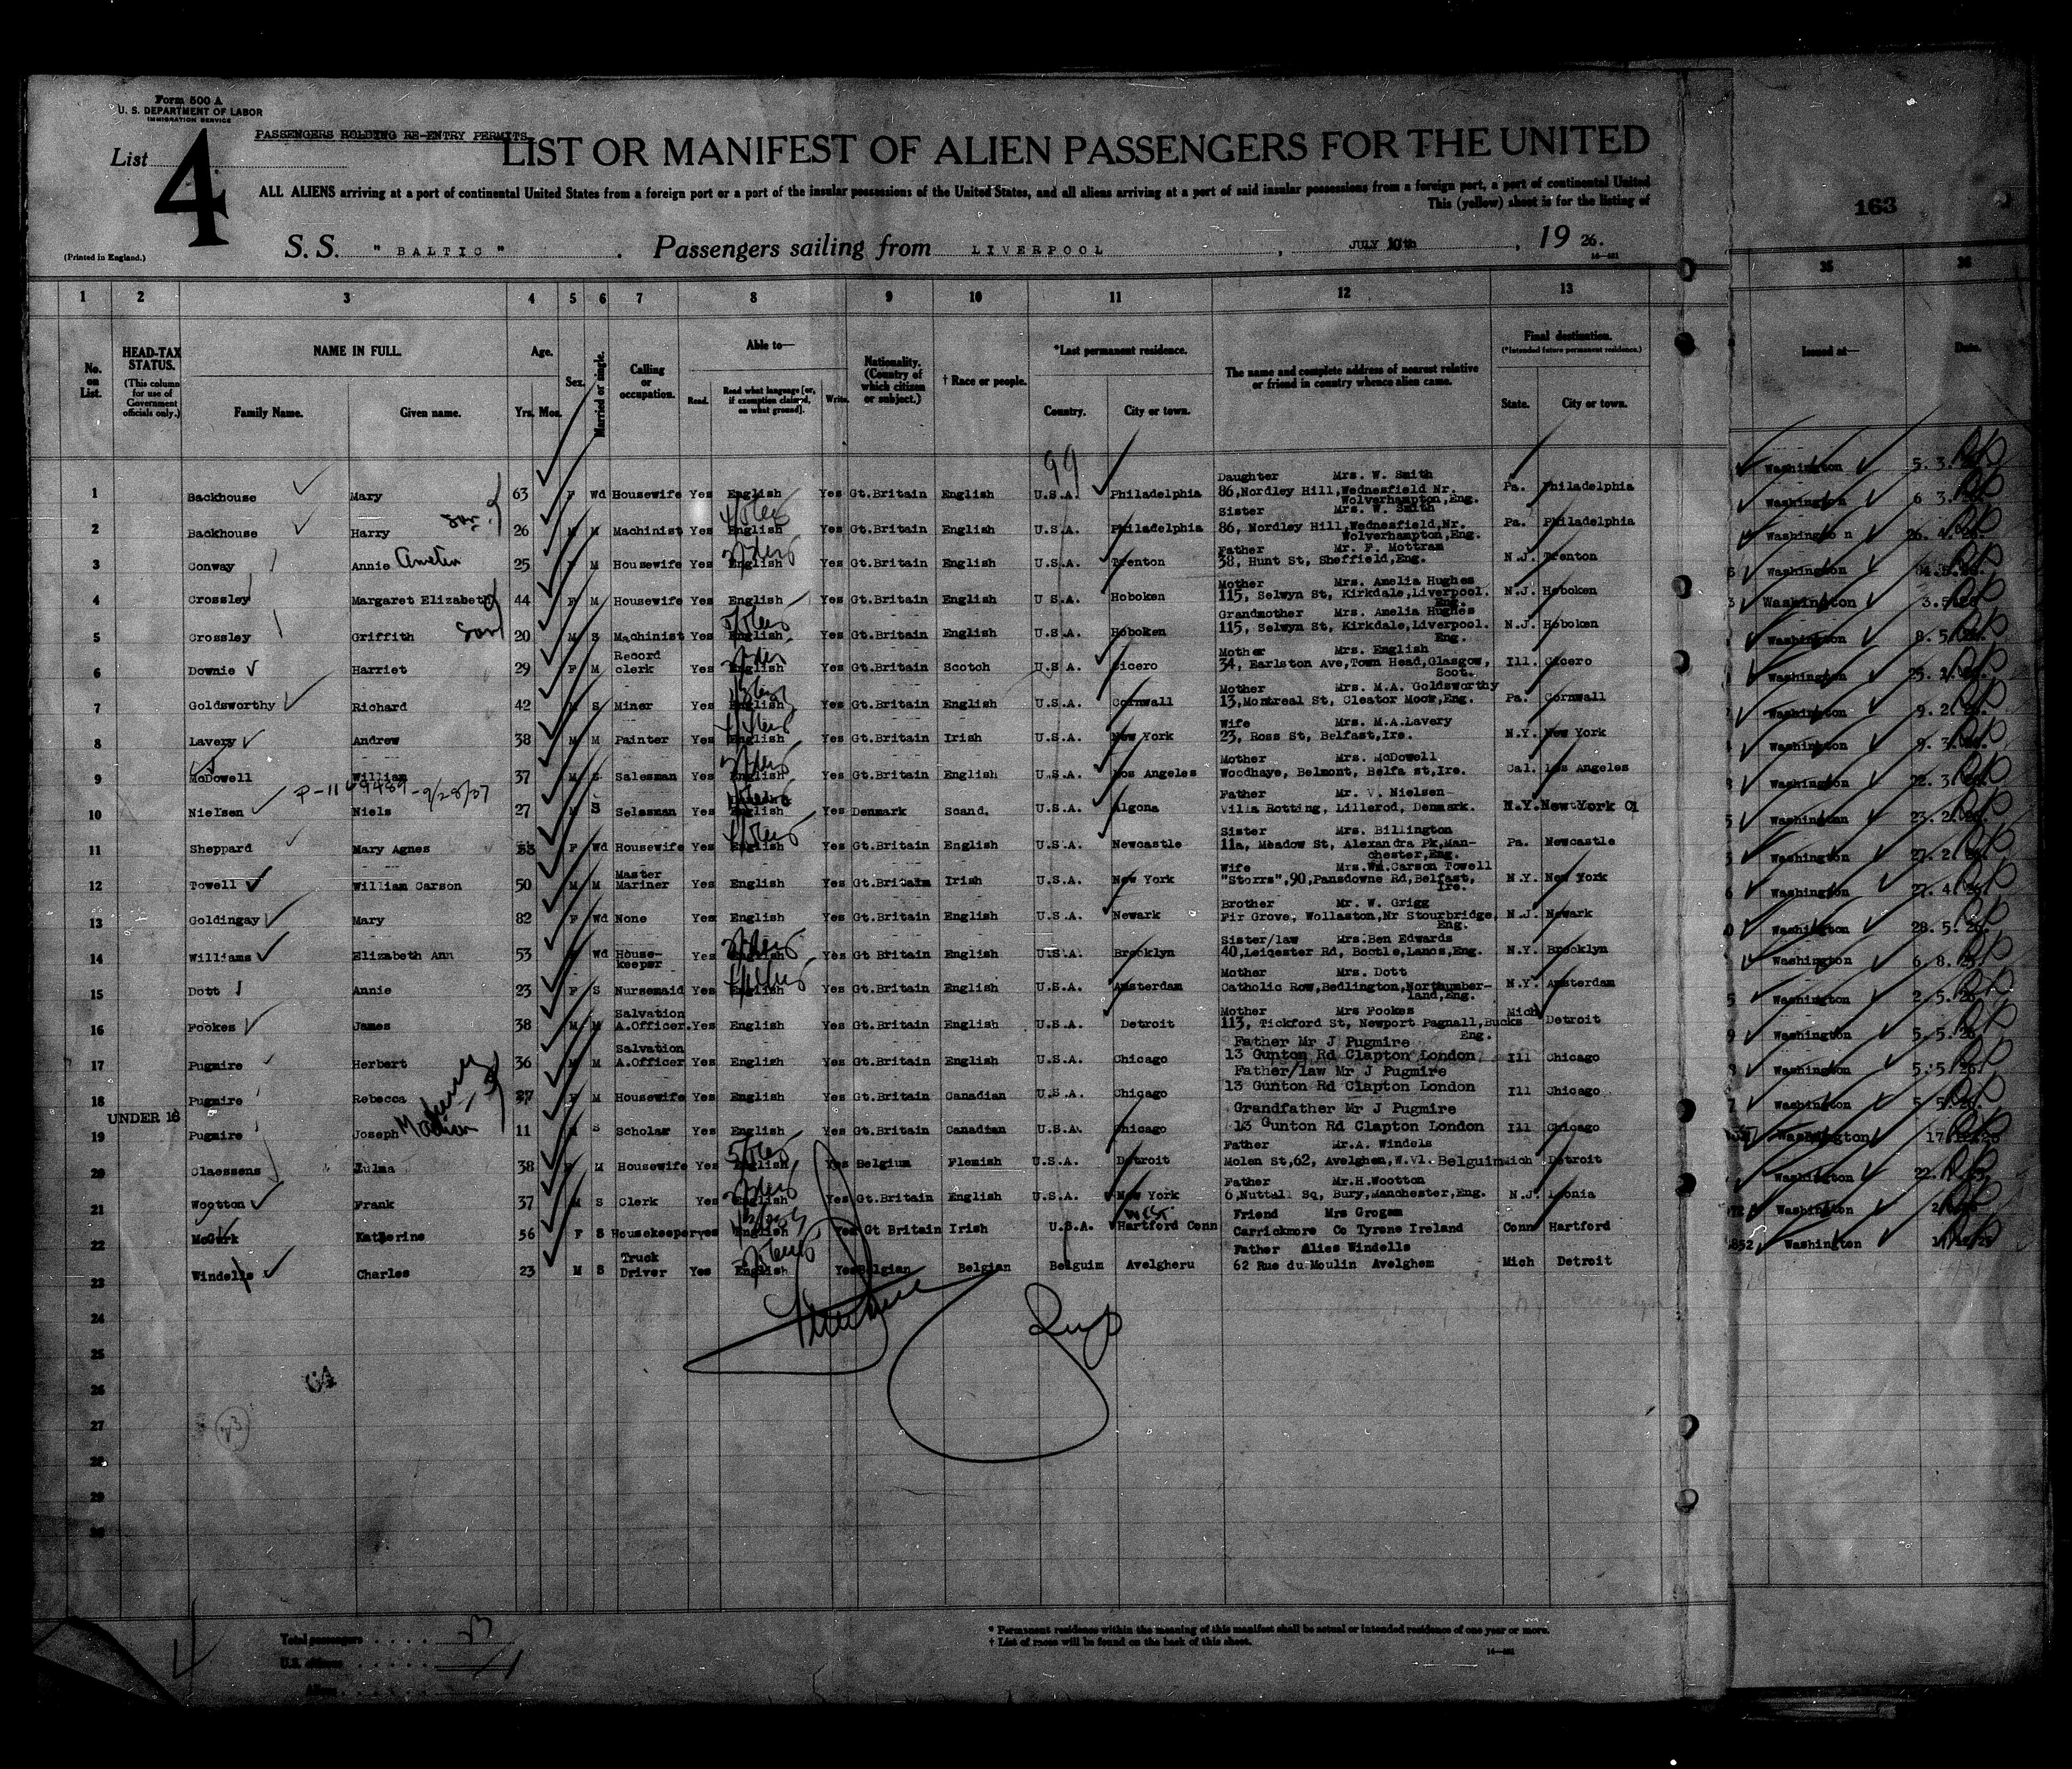 Form 500 A
U. S. DEPARTMENT OF LABOR
IMMIGRATION SERVICE
PASSENGERS HOLDING RE-ENTRY PERMITS
List 4
LIST OR MANIFEST OF ALIEN PASSENGERS FOR THE UNITED
ALL ALIENS arriving at a port of continental United States from a foreign port or a port of the insular possessions of the United States, and all aliens arriving at a port of said insular possessions from a foreign port, a port of continental United
This (yellow) sheet is for the listing of
163
(Printed in England.)
S. S. " BALTIC " . Passengers sailing from LIVERPOOL , JULY 10th , 19 26.
1 2 3 4 5 6 7 8 9 10 11 12 13 35 36
No. on List.
HEAD-TAX STATUS.
(This column for use of Government officials only.)
NAME IN FULL.
Family Name. Given name.
Age.
Yrs. Mos.
Sex.
Married or single.
Calling or occupation.
Able to—
Read. Read what language [or, if exemption claimed, on what ground]. Write.
Nationality. (Country of which citizen or subject.)
† Race or people.
*Last permanent residence.
Country. City or town.
The name and complete address of nearest relative or friend in country whence alien came.
Final destination.
(*Intended future permanent residence.)
State. City or town.
Issued at— Date.
99
Daughter Mrs. W. Smith
1 Backhouse Mary 63 F Wd Housewife Yes English Yes Gt.Britain English U.S.A. Philadelphia 86,Nordley Hill,Wednesfield Nr. Pa. Philadelphia
Wolverhampton,Eng.
Sister Mrs. W. Smith
2 Backhouse Harry son 26 M M Machinist Yes English Yes Gt.Britain English U.S.A. Philadelphia 86, Nordley Hill,Wednesfield,Nr. Pa. Philadelphia
Wolverhampton,Eng.
Father Mr. F. Mottram
3 Conway Annie 25 F M Housewife Yes English Yes Gt.Britain English U.S.A. Trenton 38, Hunt St, Sheffield,Eng. N.J. Trenton
Mother Mrs. Amelia Hughes
4 Crossley Margaret Elizabeth 44 F M Housewife Yes English Yes Gt.Britain English U S.A. Hoboken 115, Selwyn St, Kirkdale,Liverpool. N.J. Hoboken
Eng.
Grandmother Mrs. Amelia Hughes
5 Crossley Griffith son 20 M S Machinist Yes English Yes Gt.Britain English U.S.A. Hoboken 115, Selwyn St, Kirkdale,Liverpool. N.J. Hoboken
Eng.
Mother Mrs. English
6 Downie Harriet 29 F M Record clerk Yes English Yes Gt.Britain Scotch U.S.A. Cicero 34, Earlston Ave,Town Head,Glasgow, Ill. Cicero
Scot.
Mother Mrs. M.A. Goldsworthy
7 Goldsworthy Richard 42 M S Miner Yes English Yes Gt.Britain English U.S.A. Cornwall 13,Montreal St, Cleator Moor,Eng. Pa. Cornwall
Wife Mrs. M.A.Lavery
8 Lavery Andrew 38 M M Painter Yes English Yes Gt.Britain Irish U.S.A. New York 23, Ross St, Belfast,Ire. N.Y. New York
Mother Mrs. McDowell
9 McDowell William 37 M S Salesman Yes English Yes Gt.Britain English U.S.A. Los Angeles Woodhaye, Belmont, Belfa st,Ire. Cal. Los Angeles
Father Mr. V. Nielsen
10 Nielsen Niels 27 M S Salesman Yes English Yes Denmark Scand. U.S.A. Algona Villa Rotting, Lillerod, Denmark. N.Y. New York
Sister Mrs. Billington
11 Sheppard Mary Agnes F Wd Housewife Yes English Yes Gt.Britain English U.S.A. Newcastle 11a, Meadow St, Alexandra Pk,Man- Pa. Newcastle
chester,Eng.
Wife Mrs.Wm.Carson Towell
12 Towell William Carson 50 M M Master Mariner Yes English Yes Gt.Britain Irish U.S.A. New York "Storrs",90,Pansdowne Rd,Belfast, N.Y. New York
Ire.
Brother Mr. W. Grigg
13 Goldingay Mary 82 F Wd None Yes English Yes Gt.Britain English U.S.A. Newark Fir Grove, Wollaston,Nr Stourbridge, N.J. Newark
Eng.
Sister/law Mrs.Ben Edwards
14 Williams Elizabeth Ann 53 F Wd House-keeper Yes English Yes Gt Britain English U.S.A. Brooklyn 40,Leicester Rd, Bootle,Lancs,Eng. N.Y. Brooklyn
Mother Mrs. Dott
15 Dott Annie 23 F S Nursemaid Yes English Yes Gt.Britain English U.S.A. Amsterdam Catholic Row,Bedlington,Northumber- N.Y. Amsterdam
land,Eng.
Mother Mrs Fookes
16 Fookes James 38 M M Salvation A.Officer. Yes English Yes Gt.Britain English U.S.A. Detroit 113, Tickford St, Newport Pagnall,Bucks Mich Detroit
Eng.
Father Mr J Pugmire
17 Pugmire Herbert 36 M M Salvation A.Officer Yes English Yes Gt.Britain English U.S.A. Chicago 13 Gunton Rd Clapton London Ill Chicago
Father/law Mr J Pugmire
18 Pugmire Rebecca 37 F M Housewife Yes English Yes Gt.Britain Canadian U.S.A. Chicago 13 Gunton Rd Clapton London Ill Chicago
UNDER 16
Grandfather Mr J Pugmire
19 Pugmire Joseph 11 M S Scholar Yes English Yes Gt.Britain Canadian U.S.A. Chicago 13 Gunton Rd Clapton London Ill Chicago
Father Mr.A. Windels
20 Claessens Zulma 38 F M Housewife Yes English Yes Belgium Flemish U.S.A. Detroit Molen St,62, Avelghen,W.Vl. Belguim Mich Detroit
Father Mr.H.Wootton
21 Wootton Frank 37 M S Clerk Yes English Yes Gt.Britain English U.S.A. New York 6,Nuttall Sq, Bury,Manchester,Eng. N.J. Leonia
Friend Mrs Grogan
22 McGurk Katherine 56 F S Housekeeper yes English Yes Gt Britain Irish U.S.A. Hartford Conn Carrickmore Co Tyrone Ireland Conn Hartford
Father Alies Windells
23 Windells Charles 23 M S Truck Driver Yes English Yes Belgian Belgian Belguim Avelgheru 62 Rue du Moulin Avelghem Mich Detroit
24
25
26
27
28
29
30
P-1169489-9/28/37
Washington 5. 3.
Washington 6 3.
Washington
Washington
Washington 3.5
Washington 8. 5.
Washington 25. 2.
Washington 9. 2.
Washington 9. 3.
Washington 22. 3.
Washington 23. 2.
Washington 27. 2.
Washington 27. 4.
Washington 28. 5.
Washington 6. 8.
Washington 2. 5.
Washington 5. 5.
Washington 5. 5.
Washington 5. 5.
Washington
Washington
Washington
Washington
Total passengers . . . . 23
U.S. citizens . . . . .
Aliens . . . . . .
* Permanent residence within the meaning of this manifest shall be actual or intended residence of one year or more.
† List of races will be found on the back of this sheet.